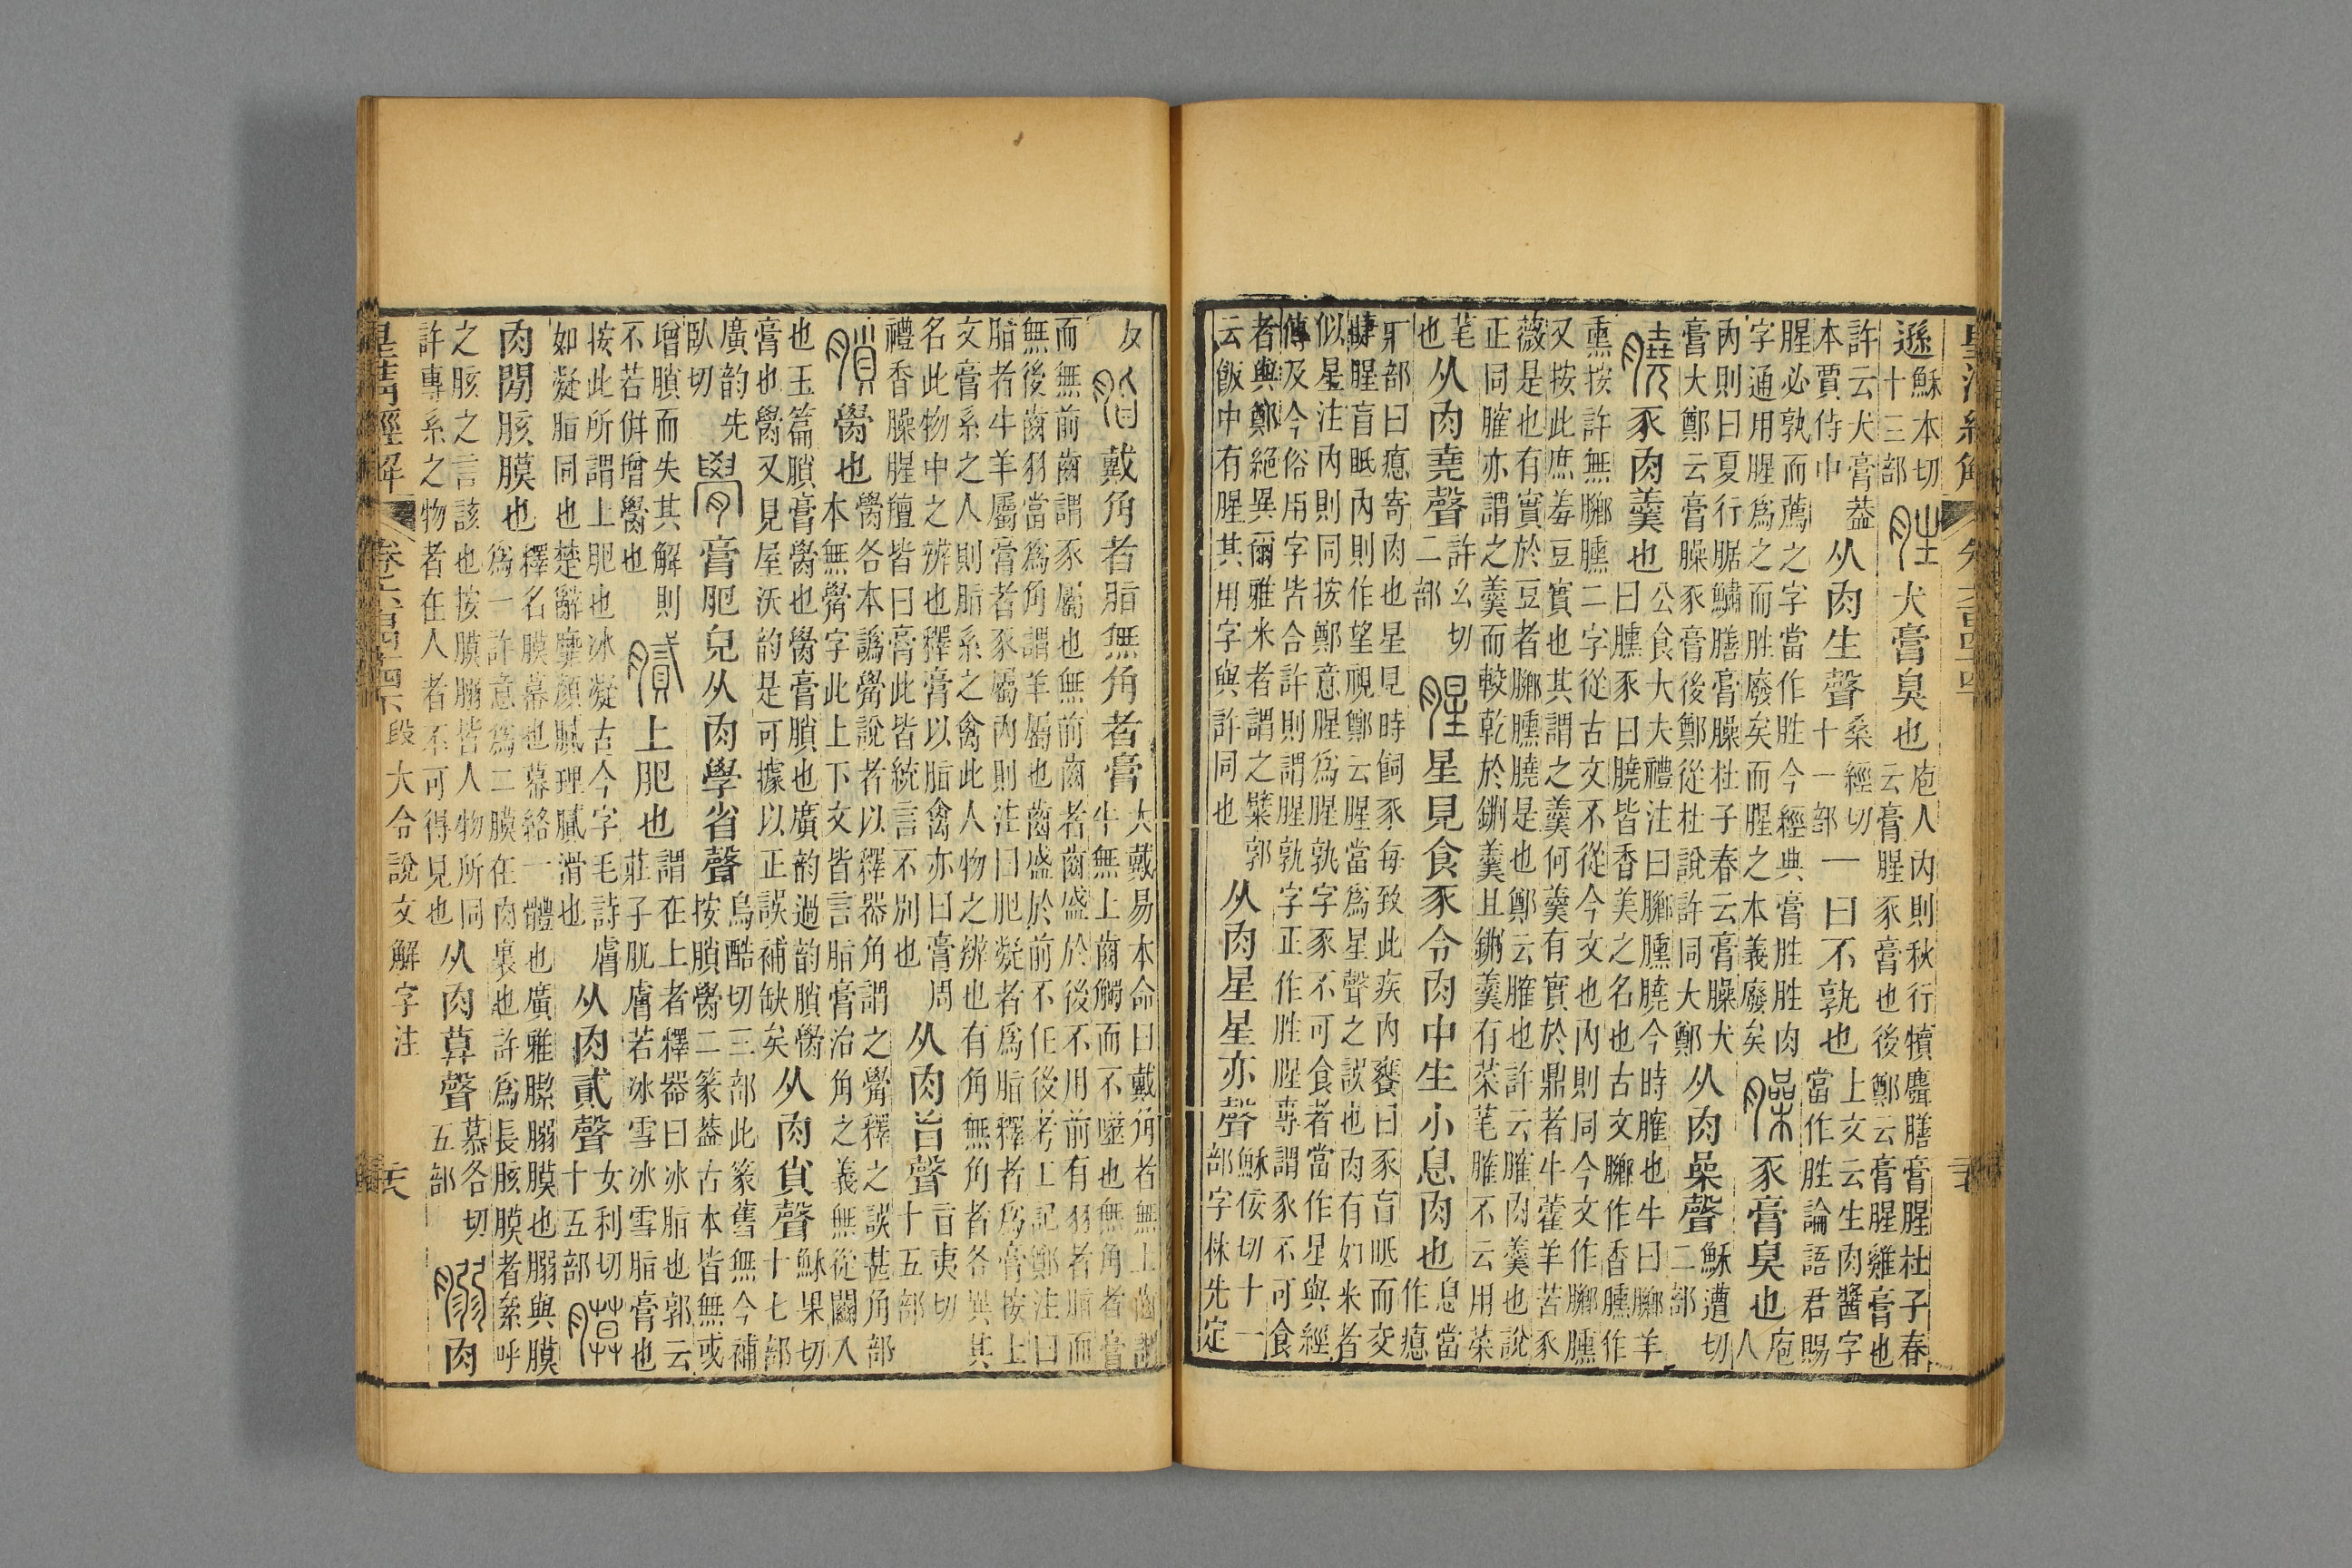 遜穌本切
十三部
胜犬膏臭也庖人內則秋行犢麛膳膏腥杜子春
云膏腥豕膏也後鄭云膏腥雞膏也
許云犬膏葢
本賈侍中
从肉生聲桑經切
十一部
一曰不孰也上文云生肉醬字
當作胜論語君賜
腥必孰而薦之字當作胜今經典膏胜胜肉
字通用腥爲之而胜廢矣而腥之本義廢矣
臊豕膏臭也庖
人
內則曰夏行腒鱐膳膏臊杜子春云膏臊犬
膏大鄭云膏臊豕膏後鄭從杜說許同大鄭
从肉喿聲穌遭切
二部
膮豕肉羹也公食大夫禮注曰膷臐膮今時臛也牛曰膷羊
曰臐豕曰膮皆香美之名也古文膷作香臐作
熏按許無膷臐二字從古文不從今文也內則同今文作膷臐
又按此庶羞豆實也其謂之羹何羹有實於鼎者牛藿羊苦豕
薇是也有實於豆者膷臐膮是也鄭云臛也許云臛肉羹也說
正同臛亦謂之羹而較乾於鉶羹且鉶羹有菜芼臛不云用菜
芼
也
从肉堯聲許幺切
二部
腥星見食豕令肉中生小息肉也息當
作瘜
疒部曰瘜寄肉也星見時飼豕每致此疾內饔曰豕盲眡而交
睫腥盲眡內則作望視鄭云腥當爲星聲之誤也肉有如米者
似星注內則同按鄭意腥爲腥孰字豕不可食者當作星與經
傳及今俗用字皆合許則謂腥孰字正作胜腥專謂豕不可食
者與鄭絕異爾雅米者謂之糪郭
云飯中有腥其用字與許同也
从肉星星亦聲穌佞切十一
部字林先定
反
脂戴角者脂無角者膏大戴易本命曰戴角者無上齒謂
牛無上齒觸而不噬也無角者膏
而無前齒謂豕屬也無前齒者齒盛於後不用前有羽者脂而
無後齒羽當爲角謂羊屬也齒盛於前不任後考工記鄭注曰
脂者牛羊屬膏者豕屬內則注曰肥凝者爲脂釋者爲膏按上
文膏系之人則脂系之禽此人物之辨也有角無角者各異其
名此物中之辨也釋膏以脂禽亦曰膏周
禮香臊腥羶皆曰膏此皆統言不別也
从肉旨聲旨夷切
十五部
𦞤臋也臋各本譌臋說者以釋器角謂之觷釋之誤甚角部
本無觷字此上下文皆言脂膏治角之義無從闌入
也玉篇𦞤膏臋也臋膏𦞤也廣韵過韵𦞤臋
膏也臋又見屋沃韵是可據以正誤補缺矣
从肉𧴪聲穌果切
十七部
廣韵先
臥切
膏肥皃从肉學省聲烏酷切三部此篆舊無今補
按𦞤臋二篆葢古本皆無或
增𦞤而失其解則
不若併增臋也
膩上肥也謂在上者釋器曰冰脂也郭云
莊子肌膚若冰雪冰雪脂膏也
按此所謂上肥也冰凝古今字毛詩膚
如凝脂同也楚辭靡顏膩理膩滑也
从肉貳聲女利切
十五部
膜
肉閒胲膜也釋名膜幕也幕絡一體也廣雅膫䐧膜也䐧與膜
爲一許意爲二膜在肉裏也許爲長胲膜者絫呼
之胲之言該也按膜䐧皆人物所同
許專系之物者在人者不可得見也
从肉莫聲慕各切
五部
䐧肉
皇清經解
卷六百四十四
段大令說文解字注